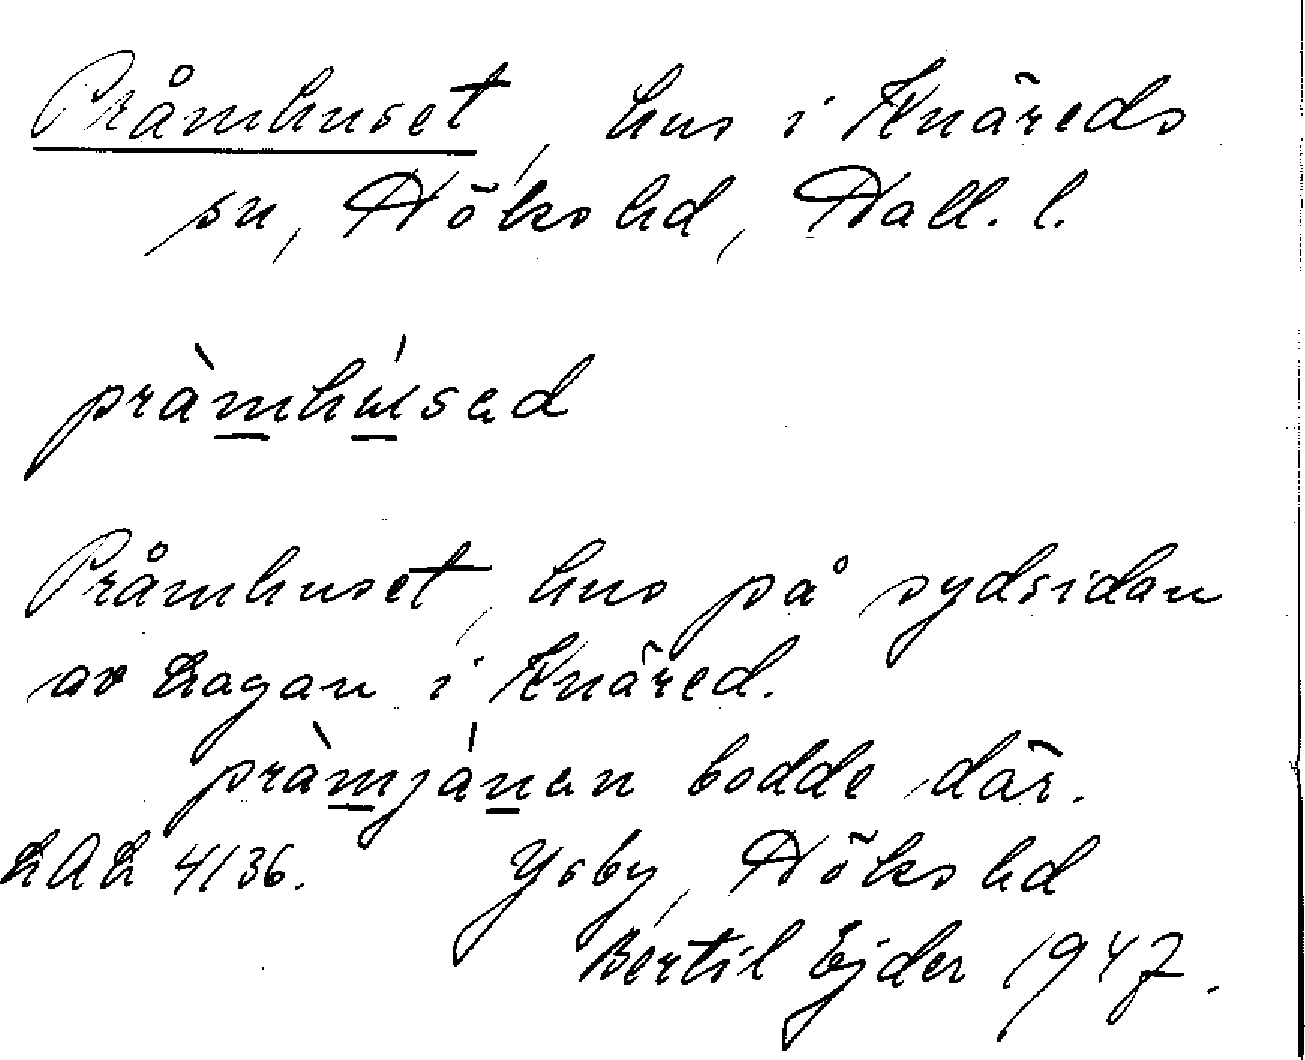 Pråmhuset, hus i Knäreds
sn, Höks hd, Hall. l.
pràmhúsad
Pråmhuset, hus på sydsidan
av Lagan i Knäred.
pràmjánan bodde där.
LAL 4136. Ysby, Höks hd
Bertil Ejder 1947.